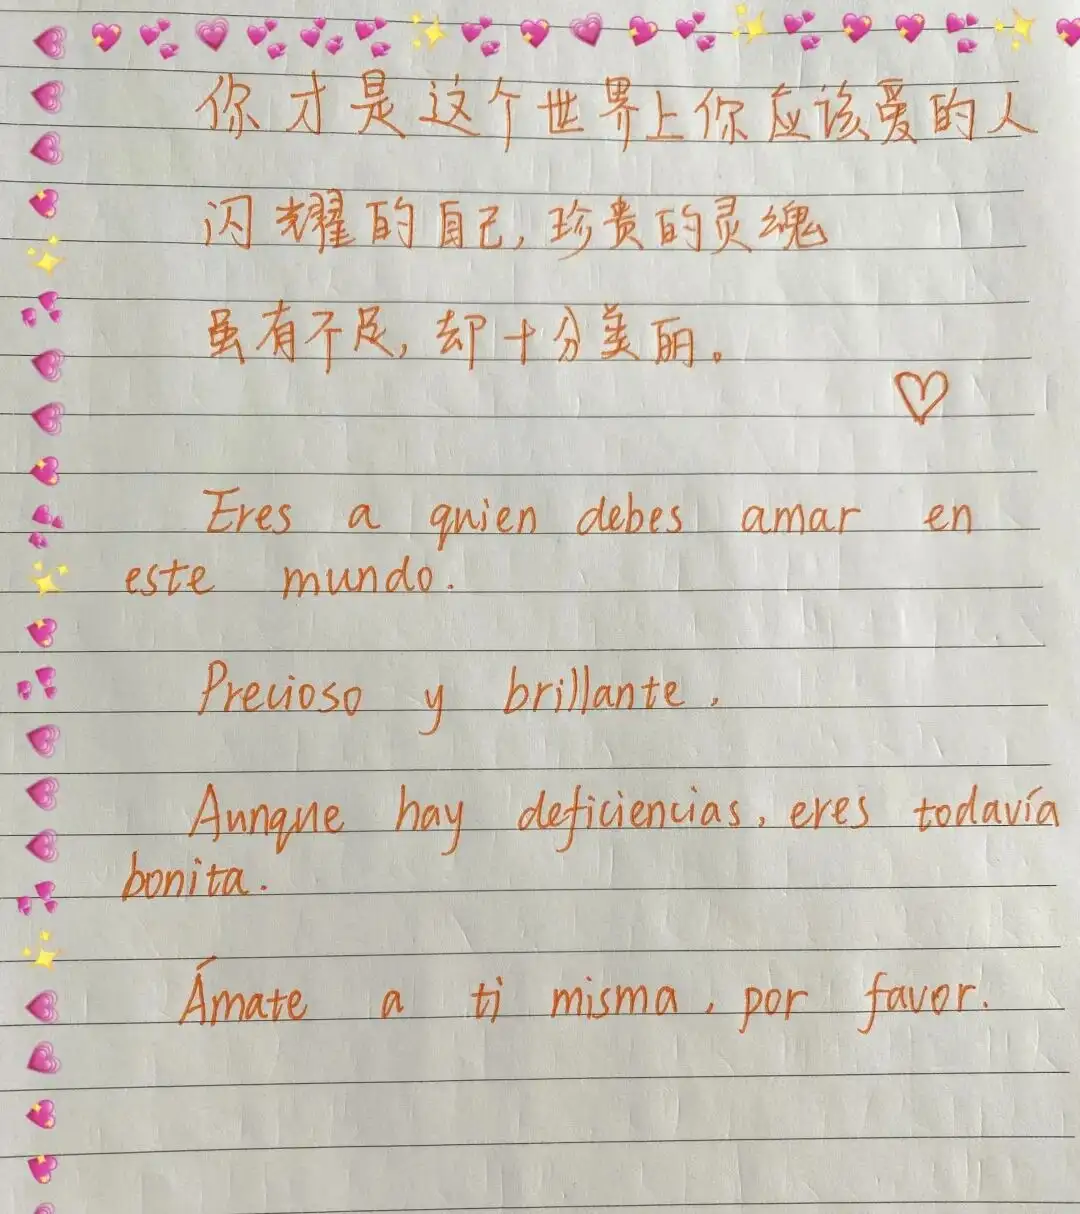 你才是这个世界上你应该爱的人
闪耀的自己,珍贵的灵魂
虽有不足,却十分美丽。
Eres a quien debes amar en
este mundo.
Precioso y brillante.
Aunque hay deficiencias, eres todavía
bonita.
Ámate a ti misma, por favor.